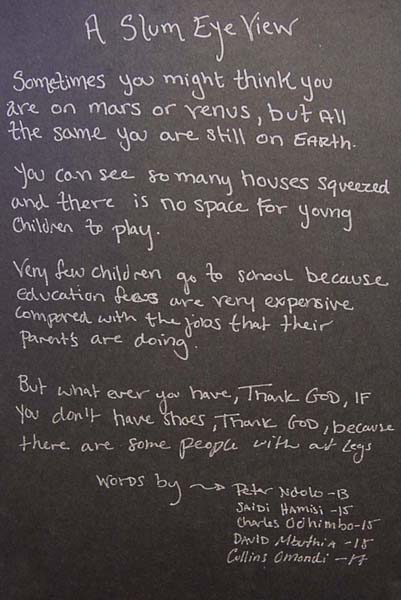 A Slum Eye View
Sometimes you might think you
are on mars or venus, but All
the same you are still on EARTH.
You can see so many houses squeezed
and there is no space for young
Children to play.
Very few children go to school because
education fees are very expensive
compared with the jobs that their
parent's are doing.
But what ever you have, Thank GOD, IF
you don't have shoes, Thank GOD, because
there are some people with out legs
WORDS by → Peter Ndolo -13
SAIDI HAMISI -15
Charles Odhimbo -15
DAVID Mbuthia -15
Collins Omondi -17